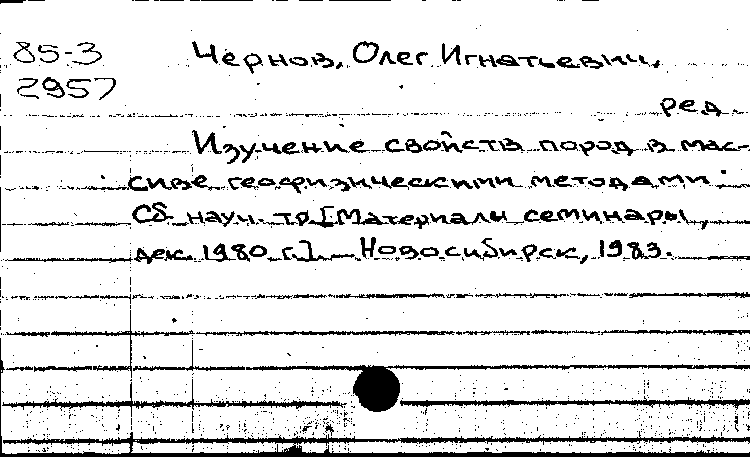 85-3 Чернов, Олег Игнатьевич,
2957
ред.
Изучение свойств пород в мас-
сиве геофизическими методами:
Сб. науч. тр. [Материалы семинары,
дек. 1980 г.]. — Новосибирск, 1983.